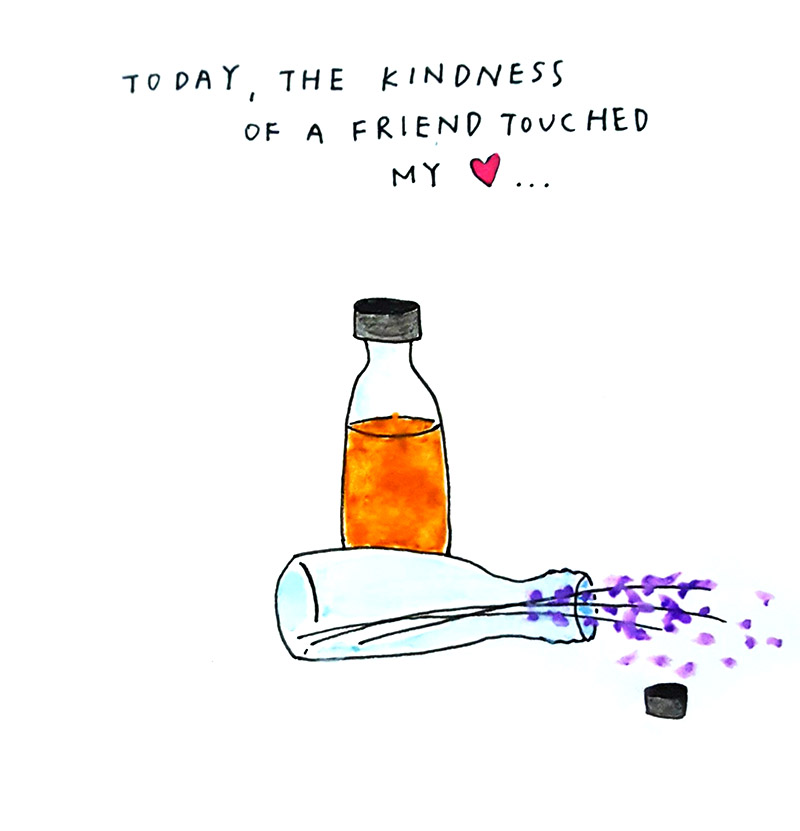 TODAY, THE KINDNESS
OF A FRIEND TOUCHED
MY ♥...